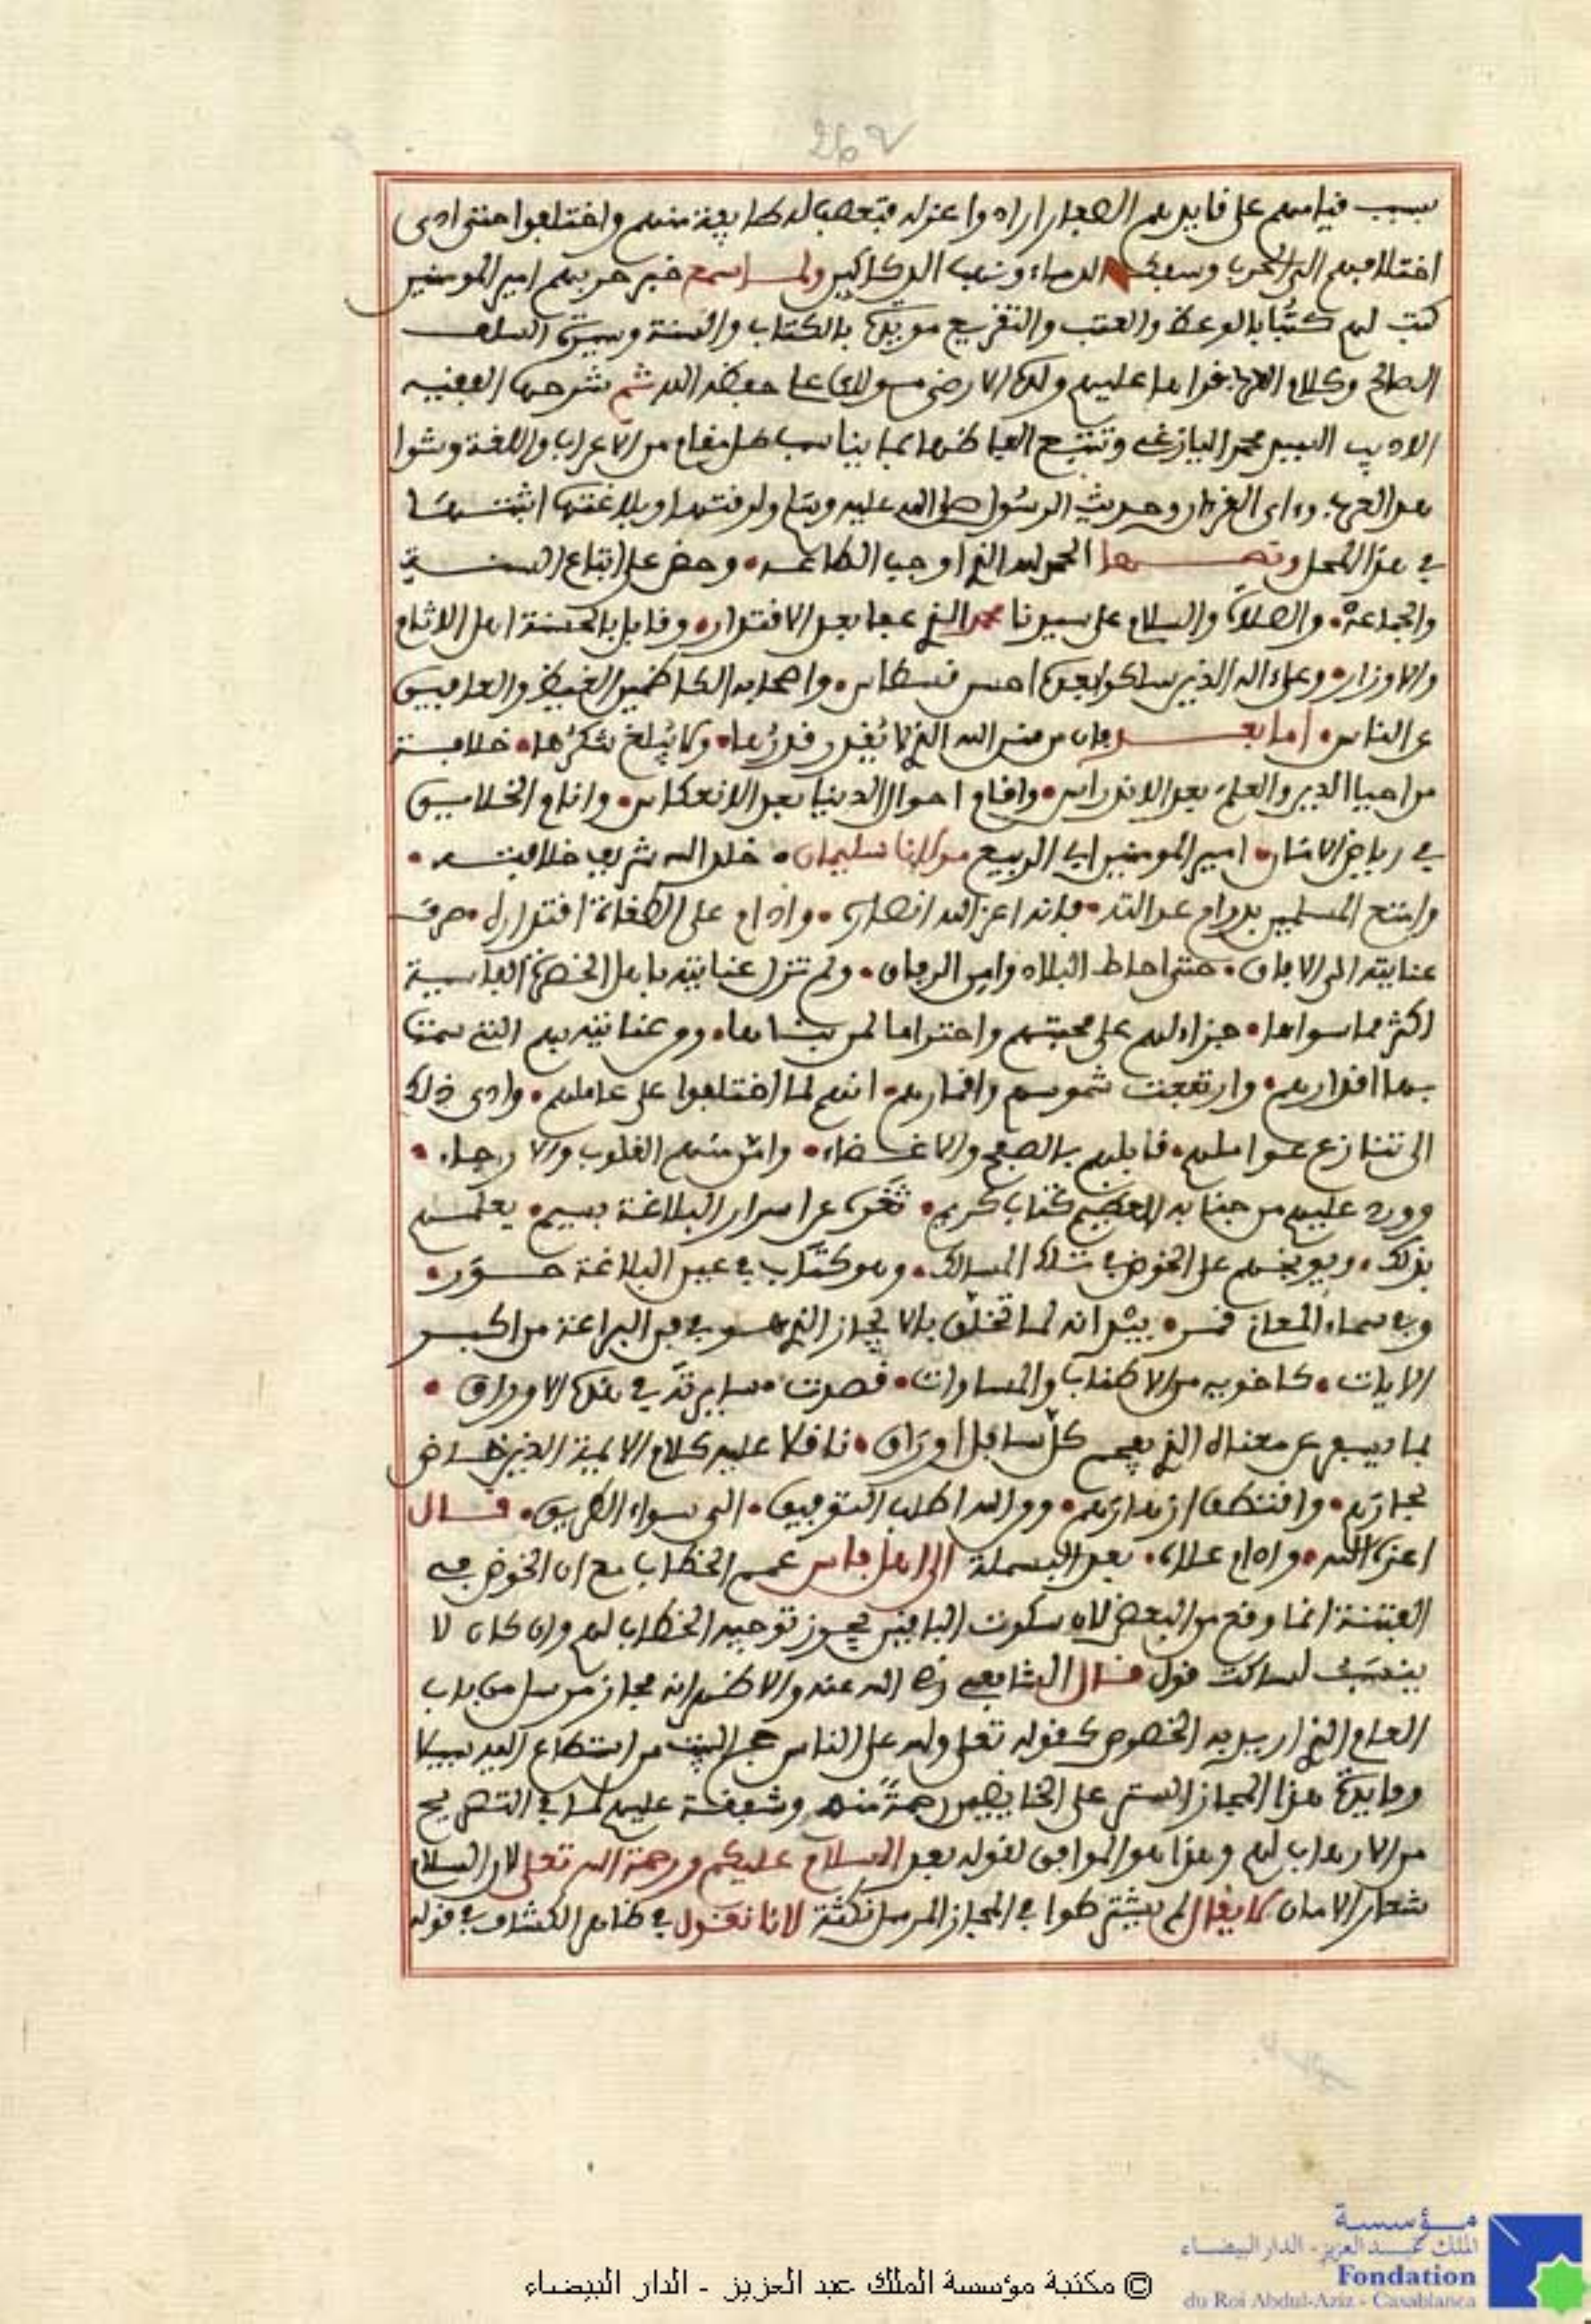 262
بسبب قيامهم على قايدهم الصفار اراد واعزله فتعصب له طايفة منهم واختلفوا حتى ادى
اختلافهم الى الحرب وسفك الدماء ونهب الدكاكين ولما سمع خبر حربهم امير المومنين
كتب لهم كتابا بالوعظ والعتب والتقريع مويدا بالكتاب والسنة وسيرة السلف
الصالح وكلام فقراها عليهم ولده الارضى مولاى على حفظه الله ثم شرحها الفقيه
الاديب محمد اليازغى وتتبع الفاظها بما يناسب كل مقام من الاعراب واللغة وشواهد
العربية وءاى القرءان وحديث الرسول صلى الله عليه وسلم ولرقتها وبلاغتها اثبتها
في هذا المحل ونصها الحمد لله الذي اوجب الطاعة وحض على اتباع السنة
والجماعة والصلاة والسلام على سيدنا محمد الذي عفا بعد الاقتدار وقابل بالحسنة اهل الاثام
والاوزار وعلى ءاله الذين سلكوا بعده احسن قسطاس واصحابه الكاظمين الغيظ والعافين
عن الناس اما بعد فان من منن الله الذي لا يقدر قدرها ولا يبلغ شكرها خلافة
من احيا الدين والعلم بعد الاندراس واقام احوال الدنيا بعد الانعكاس وانام الخلايق
في رياض الامان امير المومنين ابي الربيع مولانا سليمان خلد الله شريف خلافته
وامتع المسلمين بدوام عدالته فانه اعز الله انصاره وادام على الطغاة اقتداره صرف
عنايته الى الافاق حتى احاط البلاد وامن الرفاق ولم تزل عنايته باهل الحضرة الفاسية
اكثر مما سواها جزاء لهم على محبتهم واحتراما لمن بناها ومن عنايته بهم التي سمت
بها اقدارهم وارتفعت شموسهم واقمارهم انهم لما اختلفوا على عاملهم وادى ذلك
الى تنازع عواملهم قابلهم بالصفح والاغضاء وامن منهم القلوب والارجاء
وورد عليهم من جنابه العظيم كتاب كريم ثغره عن اسرار البلاغة بسيم يعلمهم
بذلك ويوبخهم على الخوض في تلك المسالك وهو كتاب في عين البلاغة حور
وفي سماء المعاني قمر بيد انه لما تخلق بالايجاز الذي هو في فن البراعة من اكبر
الايات كاخويه من الاطناب والمساوات قصرت مسايرته في هذه الاوراق
لما يسفر عن معناه الذي يعجم كل سافل اوراق ناقلا عليه كلام الايمة الذين خاض
بحارهم واقتطف ازهارهم ومن الله اطلب التوفيق الى سواء الطريق قال
اعزه الله وادام علاه بعد البسملة الى اهل فاس عمم الخطاب مع ان الخوض في
الفتنة انما وقع من البعض لان سكوت الباقين يجوز توجيه الخطاب لهم وان كان لا
ينسب لساكت قول قال الشافعي رضي الله عنه والاظهر انه مجاز مرسل من باب
العام الذي اريد به الخصوص كقوله تعلى ولله على الناس حج البيت من استطاع اليه سبيلا
وفايدة هذا المجاز الستر على الخايضين رحمة منه وشفقة عليهم لما في التصريح
من الارهاب لهم وهذا هو الموافق لقوله بعد السلام عليكم ورحمة الله تعلى لان السلام
شعار الامان لا يقال لم يشترطوا في المجاز المرسل نكتة لانا نقول في ظاهر الكشاف في قوله
© مكتبة مؤسسة الملك عبد العزيز - الدار البيضاء
مؤسسة
الملك عبد العزيز - الدار البيضاء
Fondation
du Roi Abdul-Aziz - Casablanca